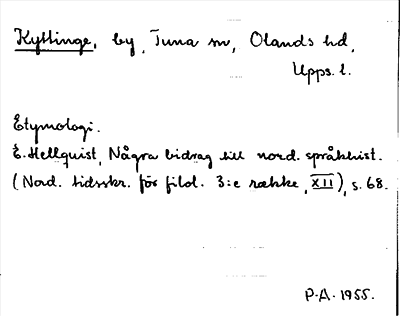 Kyttinge, by, Tuna sn, Olands hd,
Upps. l.
Etymologi.
E. Hellquist, Några bidrag till nord. språkhist.
(Nord. tidsskr. för filol. 3:e række, XII), s. 68.
P.A. 1955.